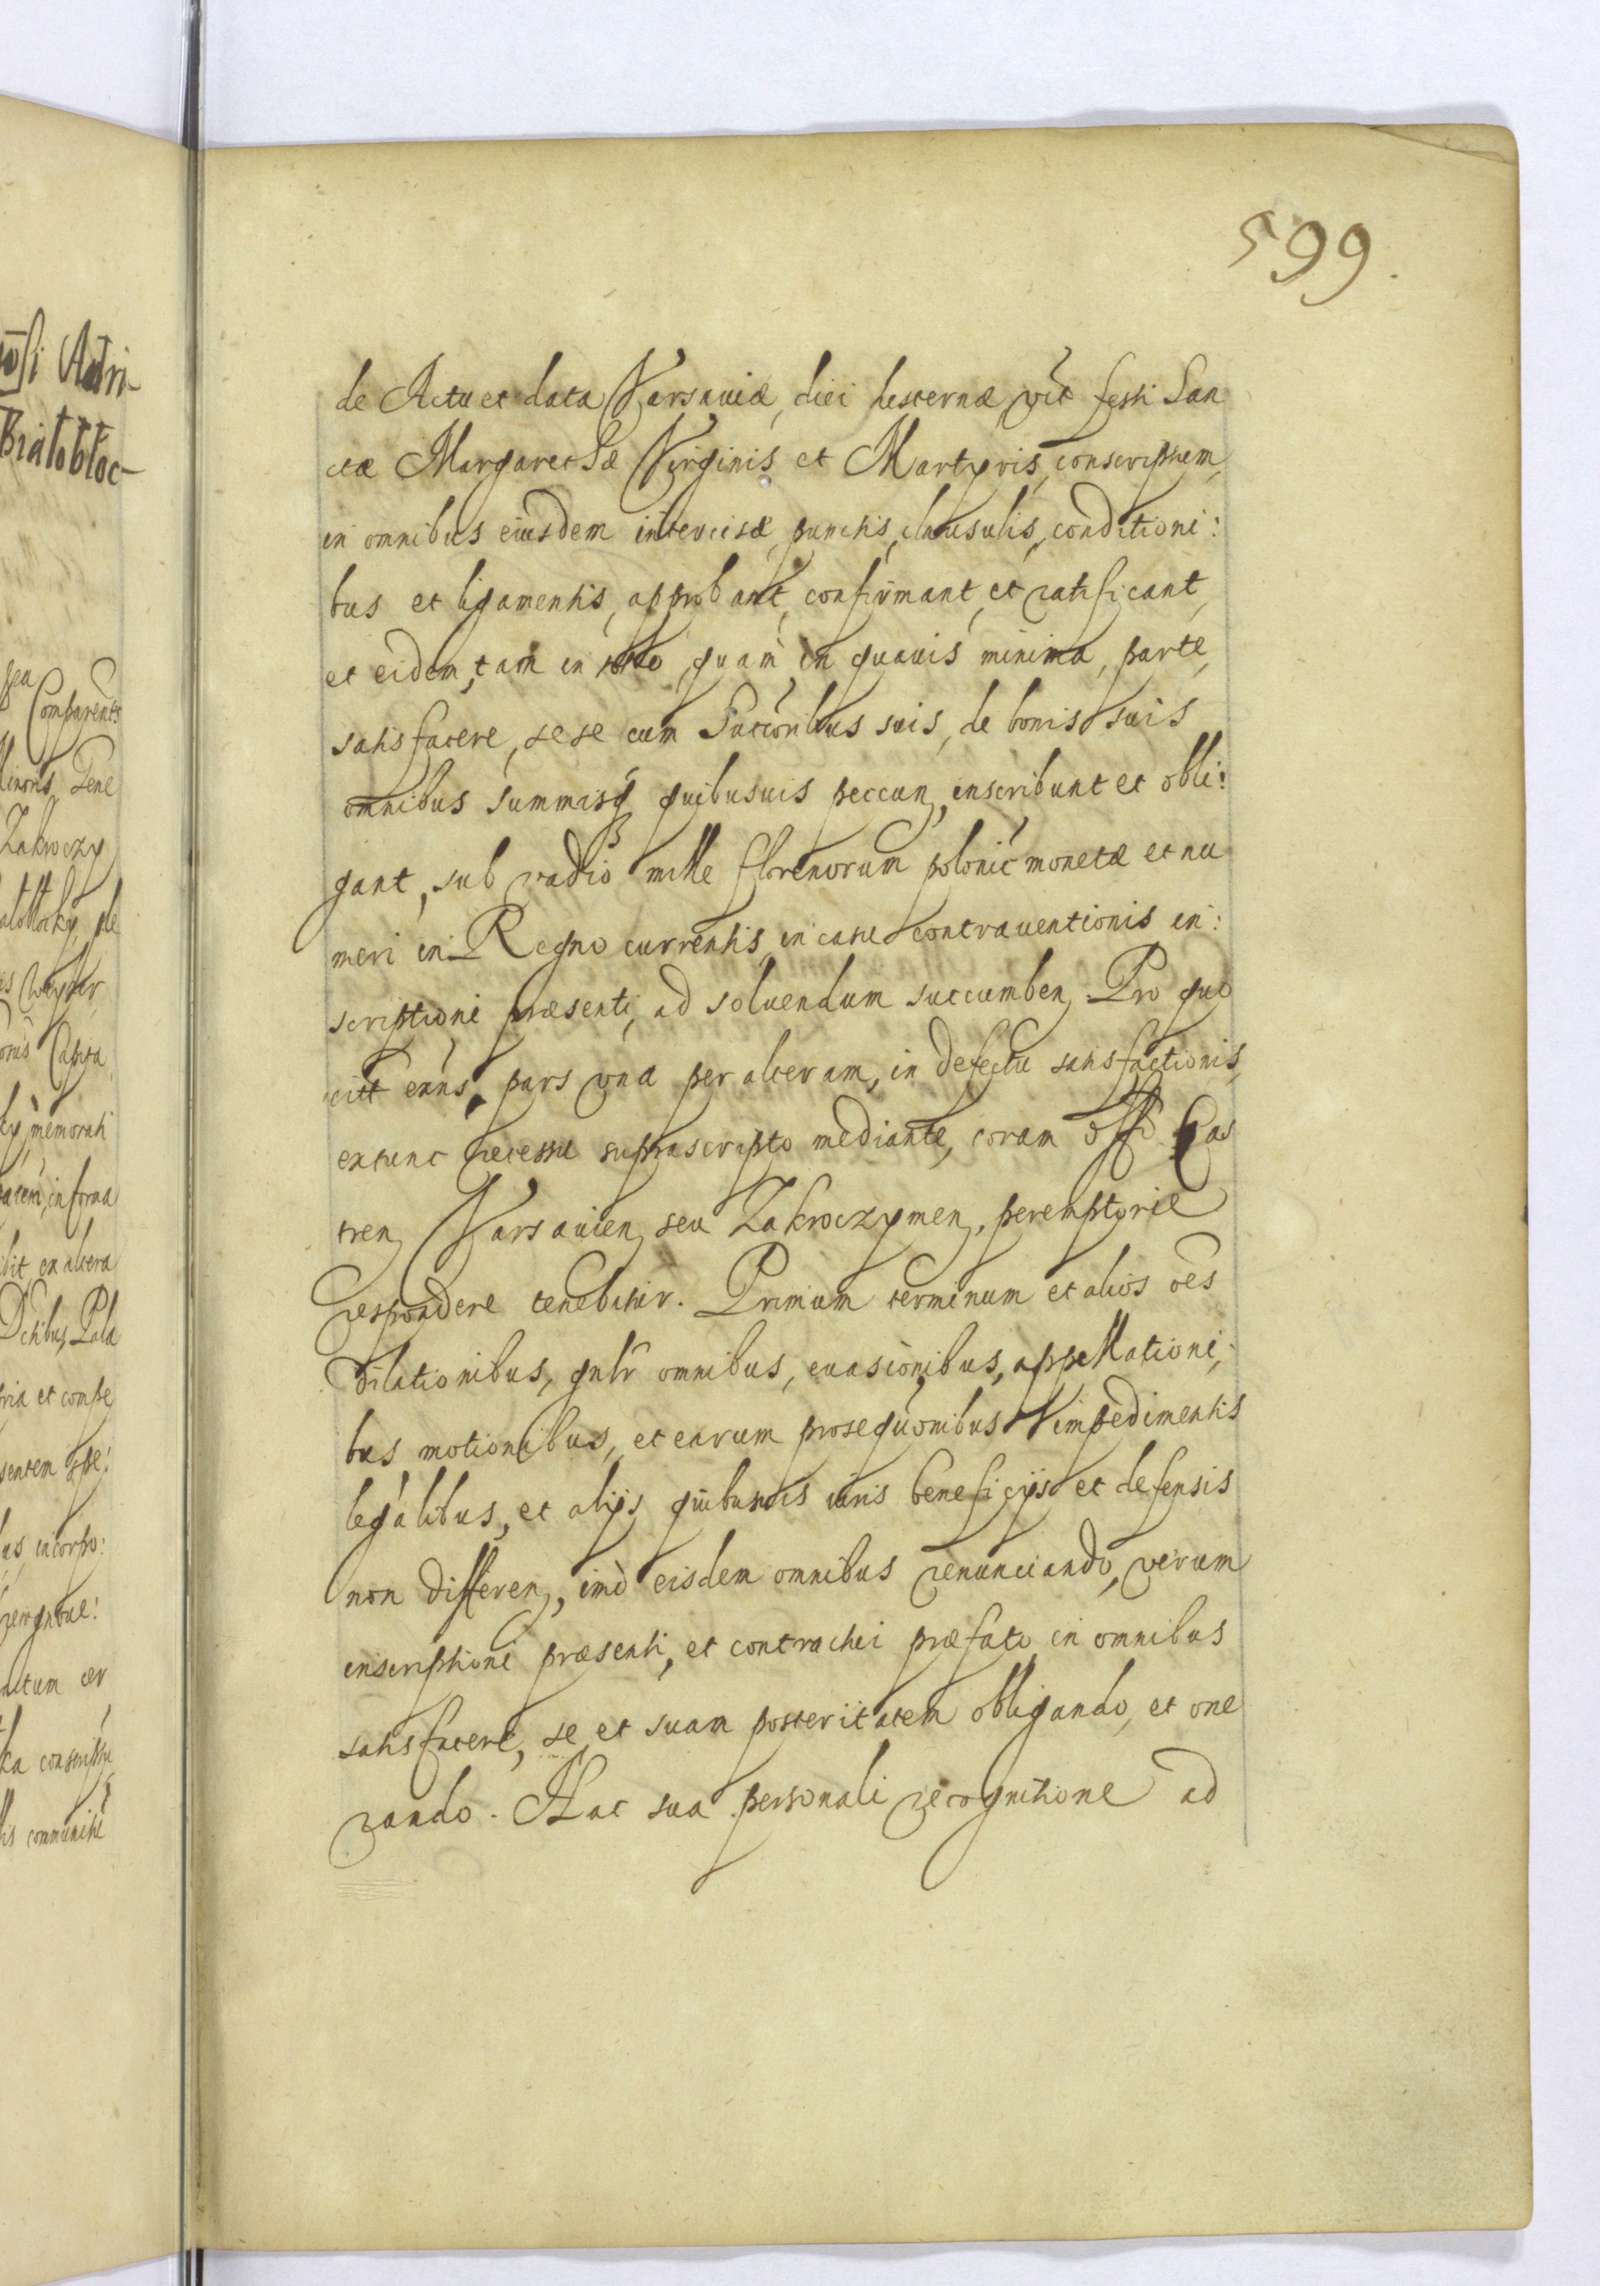 599.
de Actu et data Varsaviæ, diei hesternæ, vlt festi San
ctæ Margarethæ Virginis et Martyris, conscriptum,
in omnibus eiusdem intercisæ, punctis, clausulis, conditioni:
bus et ligamentis, approbant, confirmant, et ratificant,
et eidem, tam in toto, quam in quavis minima, parte,
satisfacere, sese cum Succoribus suis, de bonis suis
omnibus summisq quibusuis peccun, inscribunt et obli:
gant, sub vadio mille florenorum polonic monetæ et nu
meri in Regno currentis, in casu contrauentionis in:
scriptioni præsenti, ad soluendum succumben. Pro quo
citt enns, pars vna per alteram, in defectu satisfactionis,
extunc recessu suprascripto mediante, coram offo Cas
tren Varsauien, seu Zakroczymen, peremptorie
respondere tenebitur. Primum terminum et alios oēs
Dilationibus, gnlr omnibus, euasionibus, appellationi,
bus motionibus, et earum prosequonibus impedimentis
legalibus, et alijs quibusuis iuris beneficijs et defensis
non differen, imò eisdem omnibus renunciando, verum
inscriptioni præsenti, et contractui præfato in omnibus
satisfacere, se et suam posteritatem obligando, et one
rando. Hac sua personali recognitione ad
osi Adri-
Białobłoc-
Comparents
Zakroczy
memorati
in forma
ex altera
Pala
ria et compe
sentem
incorpo:
communiti